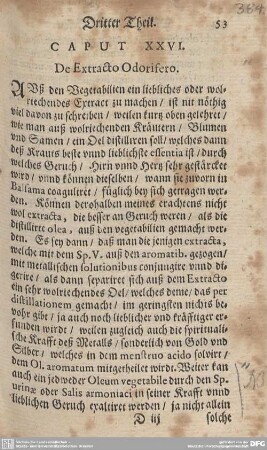 Dritter Theil. 53
CAPUT XXVI.
De Extracto Odorifero.
AVß den Vegetabilien ein liebliches oder wol-
riechendes Extract zu machen / ist nit nöthig
viel davon zu schreiben / weilen kurtz oben gelehret /
wie man auß wolriechenden Kräutern / Blumen
vnd Samen / ein Oel distilliren soll / welches dann
deß Krauts beste vnnd lieblichste essentia ist / durch
welches Geruch / Hirn vnnd Hertz sehr gestärcket
wird / vnnd können dieselben / wann sie zuvorn in
Balsama coaguliret / füglich bey sich getragen wer-
den. Können derohalben meines erachtens nicht
wol extracta, die besser an Geruch weren / als die
distillirte olea, auß den vegetabilien gemacht wer-
den. Es sey dann / daß man die jenigen extracta,
welche mit dem Sp. V. auß den aromatib. gezogen /
mit metallischen solutionibus conjungire vnnd di-
gerire / als dann separiret sich auß dem Extracto
ein sehr wolriechendes Oel / welches denen / das per
distillationem gemacht / im geringsten nichts be-
vohr gibt / ja auch noch lieblicher vnd kräfftiger er-
funden wird / weilen zugleich auch die spirituali-
sche Krafft deß Metalls / sonderlich von Gold vnd
Silber / welches in dem menstruo acido solvirt /
dem Ol. aromatum mitgetheilet wird. Weiter kan
auch ein jedweder Oleum vegetabile durch den Sp.
urinæ oder Salis armoniaci in seiner Krafft vnnd
lieblichen Geruch exaltiret werden / ja nicht allein
D iij solche